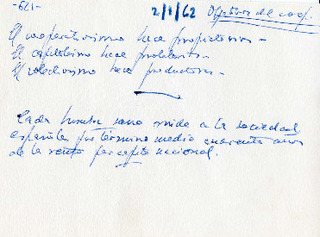 -621-
2/1/62 Objetivos del coop.
El cooperativismo hace propietarios -
El capitalismo hace proletarios -
El colectivismo hace productores -
Cada hombre sano rinde a la sociedad
española por término medio cuarenta años
de la renta per cápita nacional.